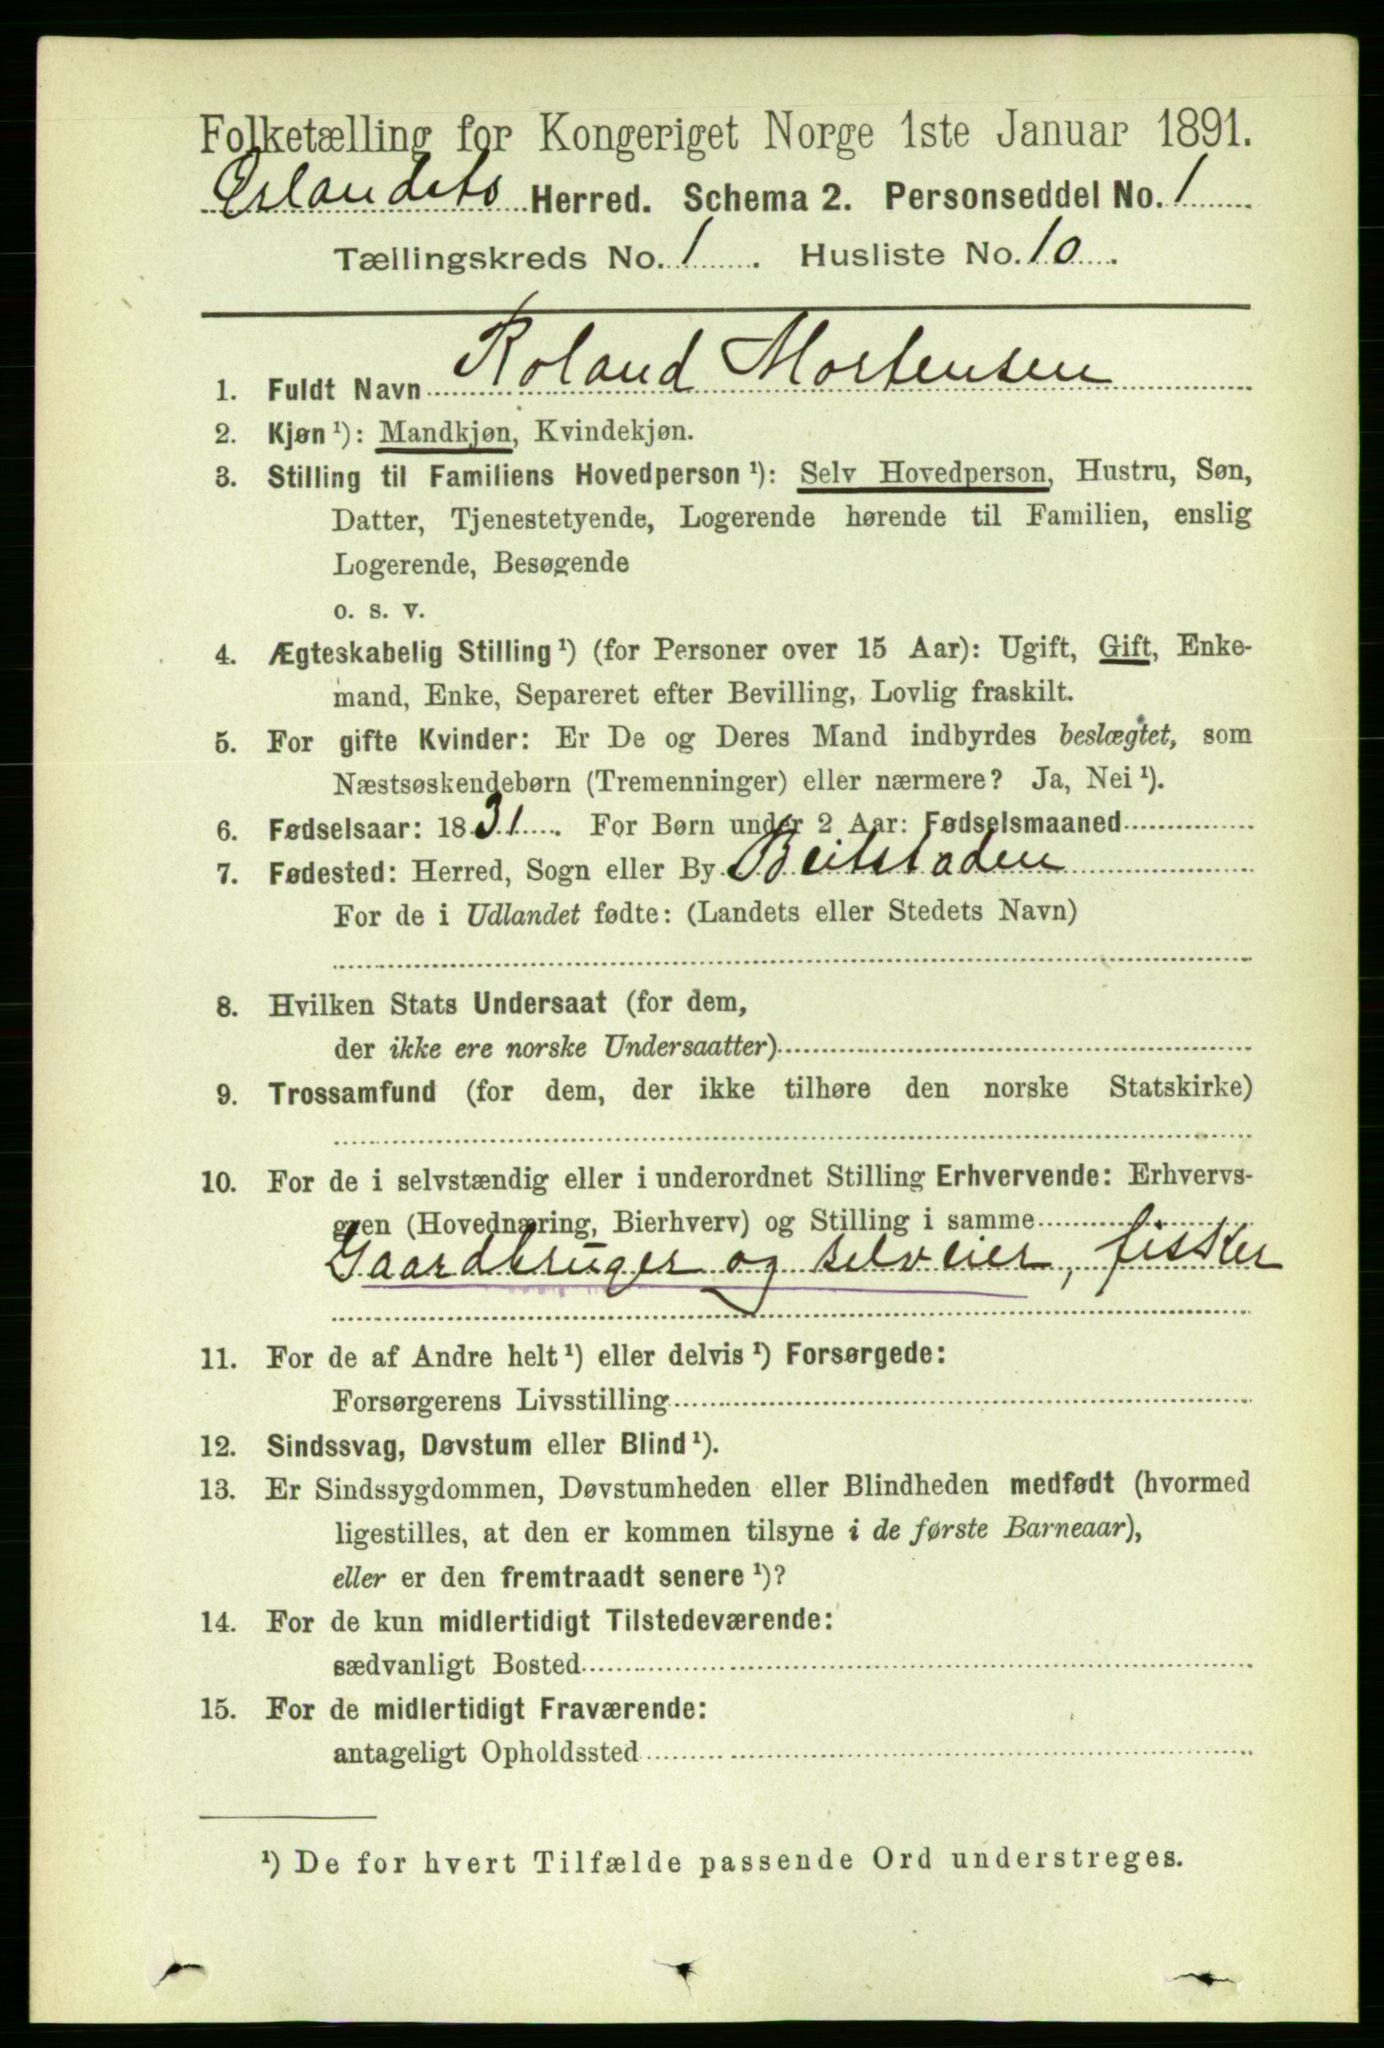 Folketælling for Kongeriget Norge 1ste Januar 1891.
Herred. Schema 2. Personseddel No. 1
Tællingskreds No. 1. Husliste No. 10.
1. Fuldt Navn Roland Mortensen
2. Kjøn ¹): Mandkjøn, Kvindekjøn.
3. Stilling til Familiens Hovedperson ¹): Selv Hovedperson, Hustru, Søn,
Datter, Tjenestetyende, Logerende hørende til Familien, enslig
Logerende, Besøgende
o. s. v.
4. Ægteskabelig Stilling ¹) (for Personer over 15 Aar): Ugift, Gift, Enke-
mand, Enke, Separeret efter Bevilling, Lovlig fraskilt.
5. For gifte Kvinder: Er De og Deres Mand indbyrdes beslægtet, som
Næstsøskendebørn (Tremenninger) eller nærmere? Ja, Nei ¹).
6. Fødselsaar: 1831. For Børn under 2 Aar: Fødselsmaaned
7. Fødested: Herred, Sogn eller By Beitstaden
For de i Udlandet fødte: (Landets eller Stedets Navn)
8. Hvilken Stats Undersaat (for dem,
der ikke ere norske Undersaatter)
9. Trossamfund (for dem, der ikke tilhøre den norske Statskirke)
10. For de i selvstændig eller i underordnet Stilling Erhvervende: Erhvervs-
gren (Hovednæring, Bierhverv) og Stilling i samme
Gaardbruger og selveier, fisker
11. For de af Andre helt ¹) eller delvis ¹) Forsørgede:
Forsørgerens Livsstilling
12. Sindssvag, Døvstum eller Blind ¹).
13. Er Sindssygdommen, Døvstumheden eller Blindheden medfødt (hvormed
ligestilles, at den er kommen tilsyne i de første Barneaar),
eller er den fremtraadt senere ¹)?
14. For de kun midlertidigt Tilstedeværende:
sædvanligt Bosted
15. For de midlertidigt Fraværende:
antageligt Opholdssted
¹) De for hvert Tilfælde passende Ord understreges.